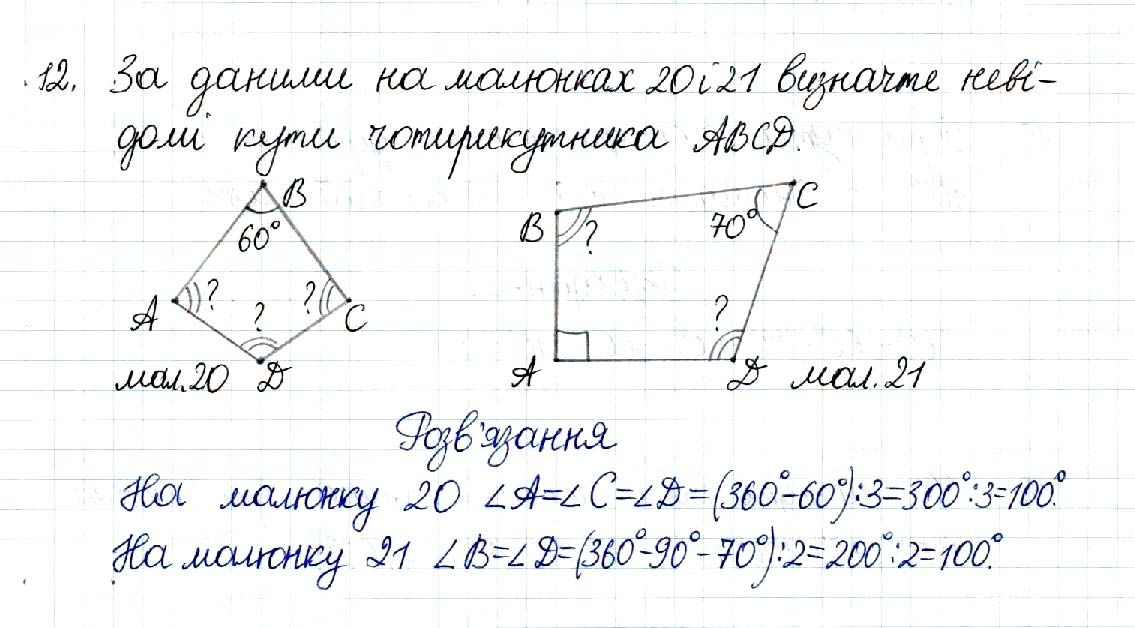 12. За даними на малюнках 20 і 21 визначте неві-
домі кути чотирикутника ABCD.
B
60°
A
?
?
?
C
D
мал. 20
B
?
C
70°
?
A
D
мал. 21
Розв'язання
На малюнку 20 ∠A=∠C=∠D=(360°-60°):3=300°:3=100°.
На малюнку 21 ∠B=∠D=(360°-90°-70°):2=200°:2=100°.